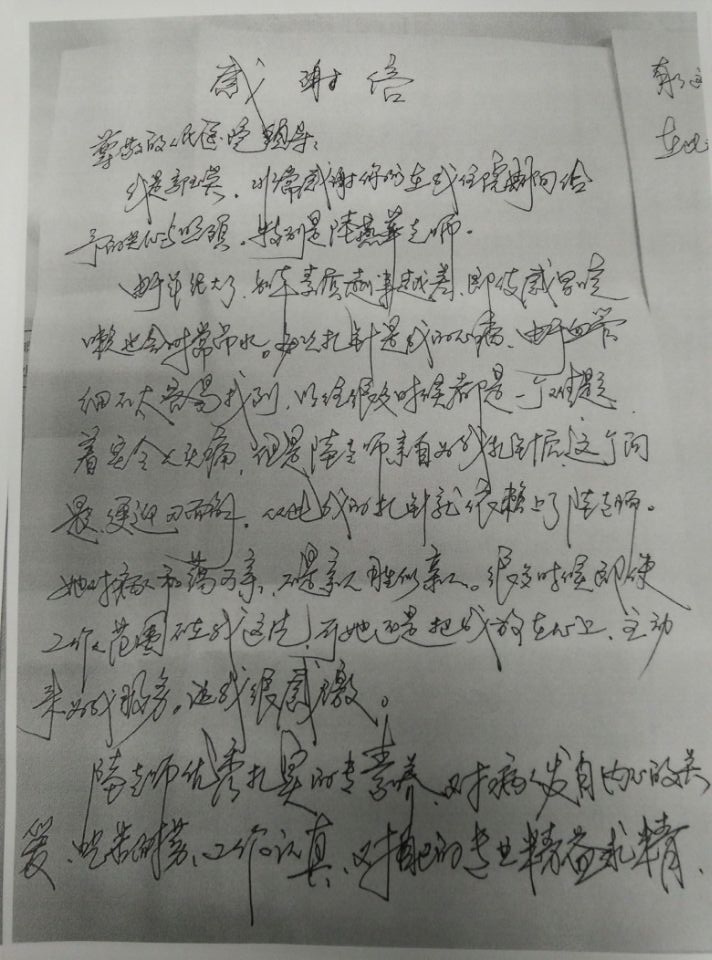 感谢信
尊敬的人民医院领导：
我是郭玉英，非常感谢你们在我住院期间给
予的关心与照顾。特别是陆燕华老师。
由于年纪大了，身体素质越来越差，即使感冒咳
嗽也会时常吊水。每次扎针是我的心病，由于血管
细不太容易找到，以往很多时候都是一个难题，
着实令人头痛，但是陆老师亲自为我扎针后，这个问
题便迎刃而解。从此我的扎针就依赖上了陆老师。
她对病人和蔼可亲，不是亲人胜似亲人。很多时候即使
工作范围不在我这边，可她还是把我放在心上，主动
来为我服务。让我很感激。
陆老师优秀扎实的专素养，对病人发自内心的关
爱，吃苦耐劳，工作认真，对自己的专业精益求精，